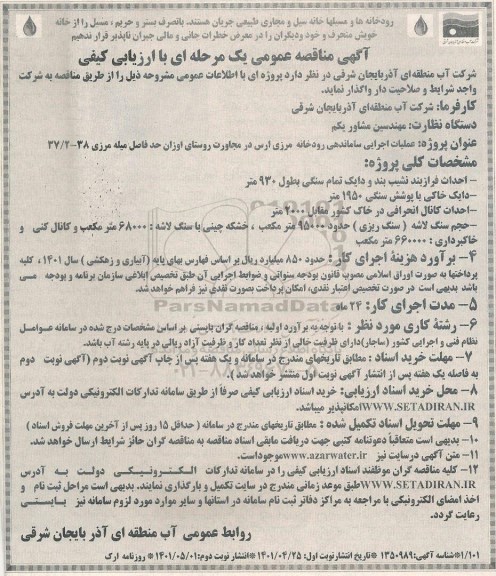 رودخانه ها و مسیلها خانه سیل و مجاری طبیعی جریان هستند. باتصرف بستر و حریم، مسیل را از خانه
خویش منحرف و خود ودیگران را در معرض خطرات جانی و مالی جبران ناپذیر قرار ندهیم
آگهی مناقصه عمومی یک مرحله ای با ارزیابی کیفی
شرکت آب منطقه ای آذربایجان شرقی در نظر دارد پروژه ای با اطلاعات عمومی مشروحه ذیل را از طریق مناقصه به شرکت
واجد شرایط و صلاحیت دار واگذار نماید.
کارفرما: شرکت آب منطقه‌ای آذربایجان شرقی
دستگاه نظارت: مهندسین مشاور یکم
عنوان پروژه: عملیات اجرایی ساماندهی رودخانه مرزی ارس در مجاورت روستای اوزان حد فاصل میله مرزی ۳۸-۳۷/۲
مشخصات کلی پروژه:
-احداث فرازبند نشیب بند و دایک تمام سنگی بطول ۹۳۰ متر
-دایک خاکی با پوشش سنگی ۱۹۵۰ متر
-احداث کانال انحرافی در خاک کشور مقابل ۲۰۰۰ متر
-حجم سنگ لاشه ( سنگ ریزی ) حدود ۹۵۰۰۰ متر مکعب ، خشکه چینی با سنگ لاشه : ۶۸۰۰۰ متر مکعب و کانال کنی و
خاکبرداری : ۶۶۰۰۰۰ متر مکعب
۴- برآورد هزینۀ اجرای کار : حدود ۸۵۰ میلیارد ریال بر اساس فهارس بهای پایه (آبیاری و زهکشی ) سال ۱۴۰۱ ، کلیه
پرداختها به صورت اوراق اسلامی مصوب قانون بودجه سنواتی و ضوابط اجرایی آن طبق تخصیص ابلاغی سازمان برنامه و بودجه می
باشد بدیهی است در صورت تخصیص اعتبار نقدی، امکان پرداخت بصورت نقدی نیز فراهم خواهد شد.
۵- مدت اجرای کار: ۲۴ ماه
۶- رشتۀ کاری مورد نظر : با توجه به برآورد اولیه ، مناقصه گران بایستی بر اساس مشخصات درج شده در سامانه عوامل
نظام فنی و اجرایی کشور (ساجار)دارای ظرفیت خالی از نظر تعداد کار و ظرفیت آزاد ریالی در پایه رشته آب باشد.
۷- مهلت خرید اسناد : مطابق تاریخهای مندرج در سامانه و یک هفته پس از چاپ آگهی نوبت دوم (آگهی نوبت دوم
به فاصله یک هفته پس از انتشار آگهی نوبت اول منتشر خواهد شد ).
۸- محل خرید اسناد ارزیابی: خرید اسناد ارزیابی کیفی صرفاً از طریق سامانه تدارکات الکترونیکی دولت به آدرس
WWW.SETADIRAN.IR امکانپذیر میباشد.
۹- مهلت تحویل اسناد تکمیل شده : مطابق تاریخهای مندرج در سامانه ( حداقل ۱۵ روز پس از آخرین مهلت فروش اسناد )
۱۰- بدیهی است متعاقباً دعوتنامه کتبی جهت دریافت مابقی اسناد مناقصه به مناقصه گران حائز شرایط ارسال خواهد شد.
۱۱- متن آگهی درسایت نیز www.azarwater.ir موجوداست.
۱۲- کلیه مناقصه گران موظفند اسناد ارزیابی کیفی را در سامانه تدارکات الکترونیکی دولت به آدرس
WWW.SETADIRAN.IR طبق موعد زمانی مندرج در سایت تکمیل و بارگذاری نمایند. بدیهی است مراحل ثبت نام و
اخذ امضای الکترونیکی با مراجعه به مراکز دفاتر ثبت نام سامانه در استانها و سایر موارد مورد لزوم سامانه نیز بایستی
رعایت گردد.
روابط عمومی آب منطقه ای آذربایجان شرقی
۱/۱۰۱*شناسه آگهی: ۱۳۵۰۹۸۹ *تاریخ انتشارنوبت اول: ۱۴۰۱/۰۴/۲۵ *انتشار نوبت دوم: ۱۴۰۱/۰۵/۰۱* روزنامه ارک
ParsNamadData